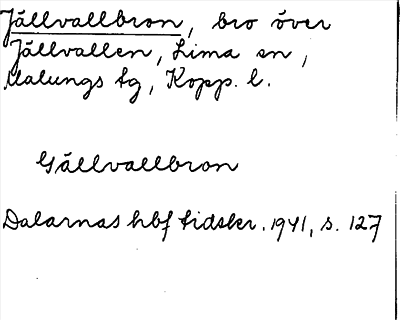 Jällvallbron, bro över
Jällvallen, Lima sn,
Malungs tg, Kopp. l.
Gällvallbron
Dalarnas hbf tidskr. 1941, s. 127